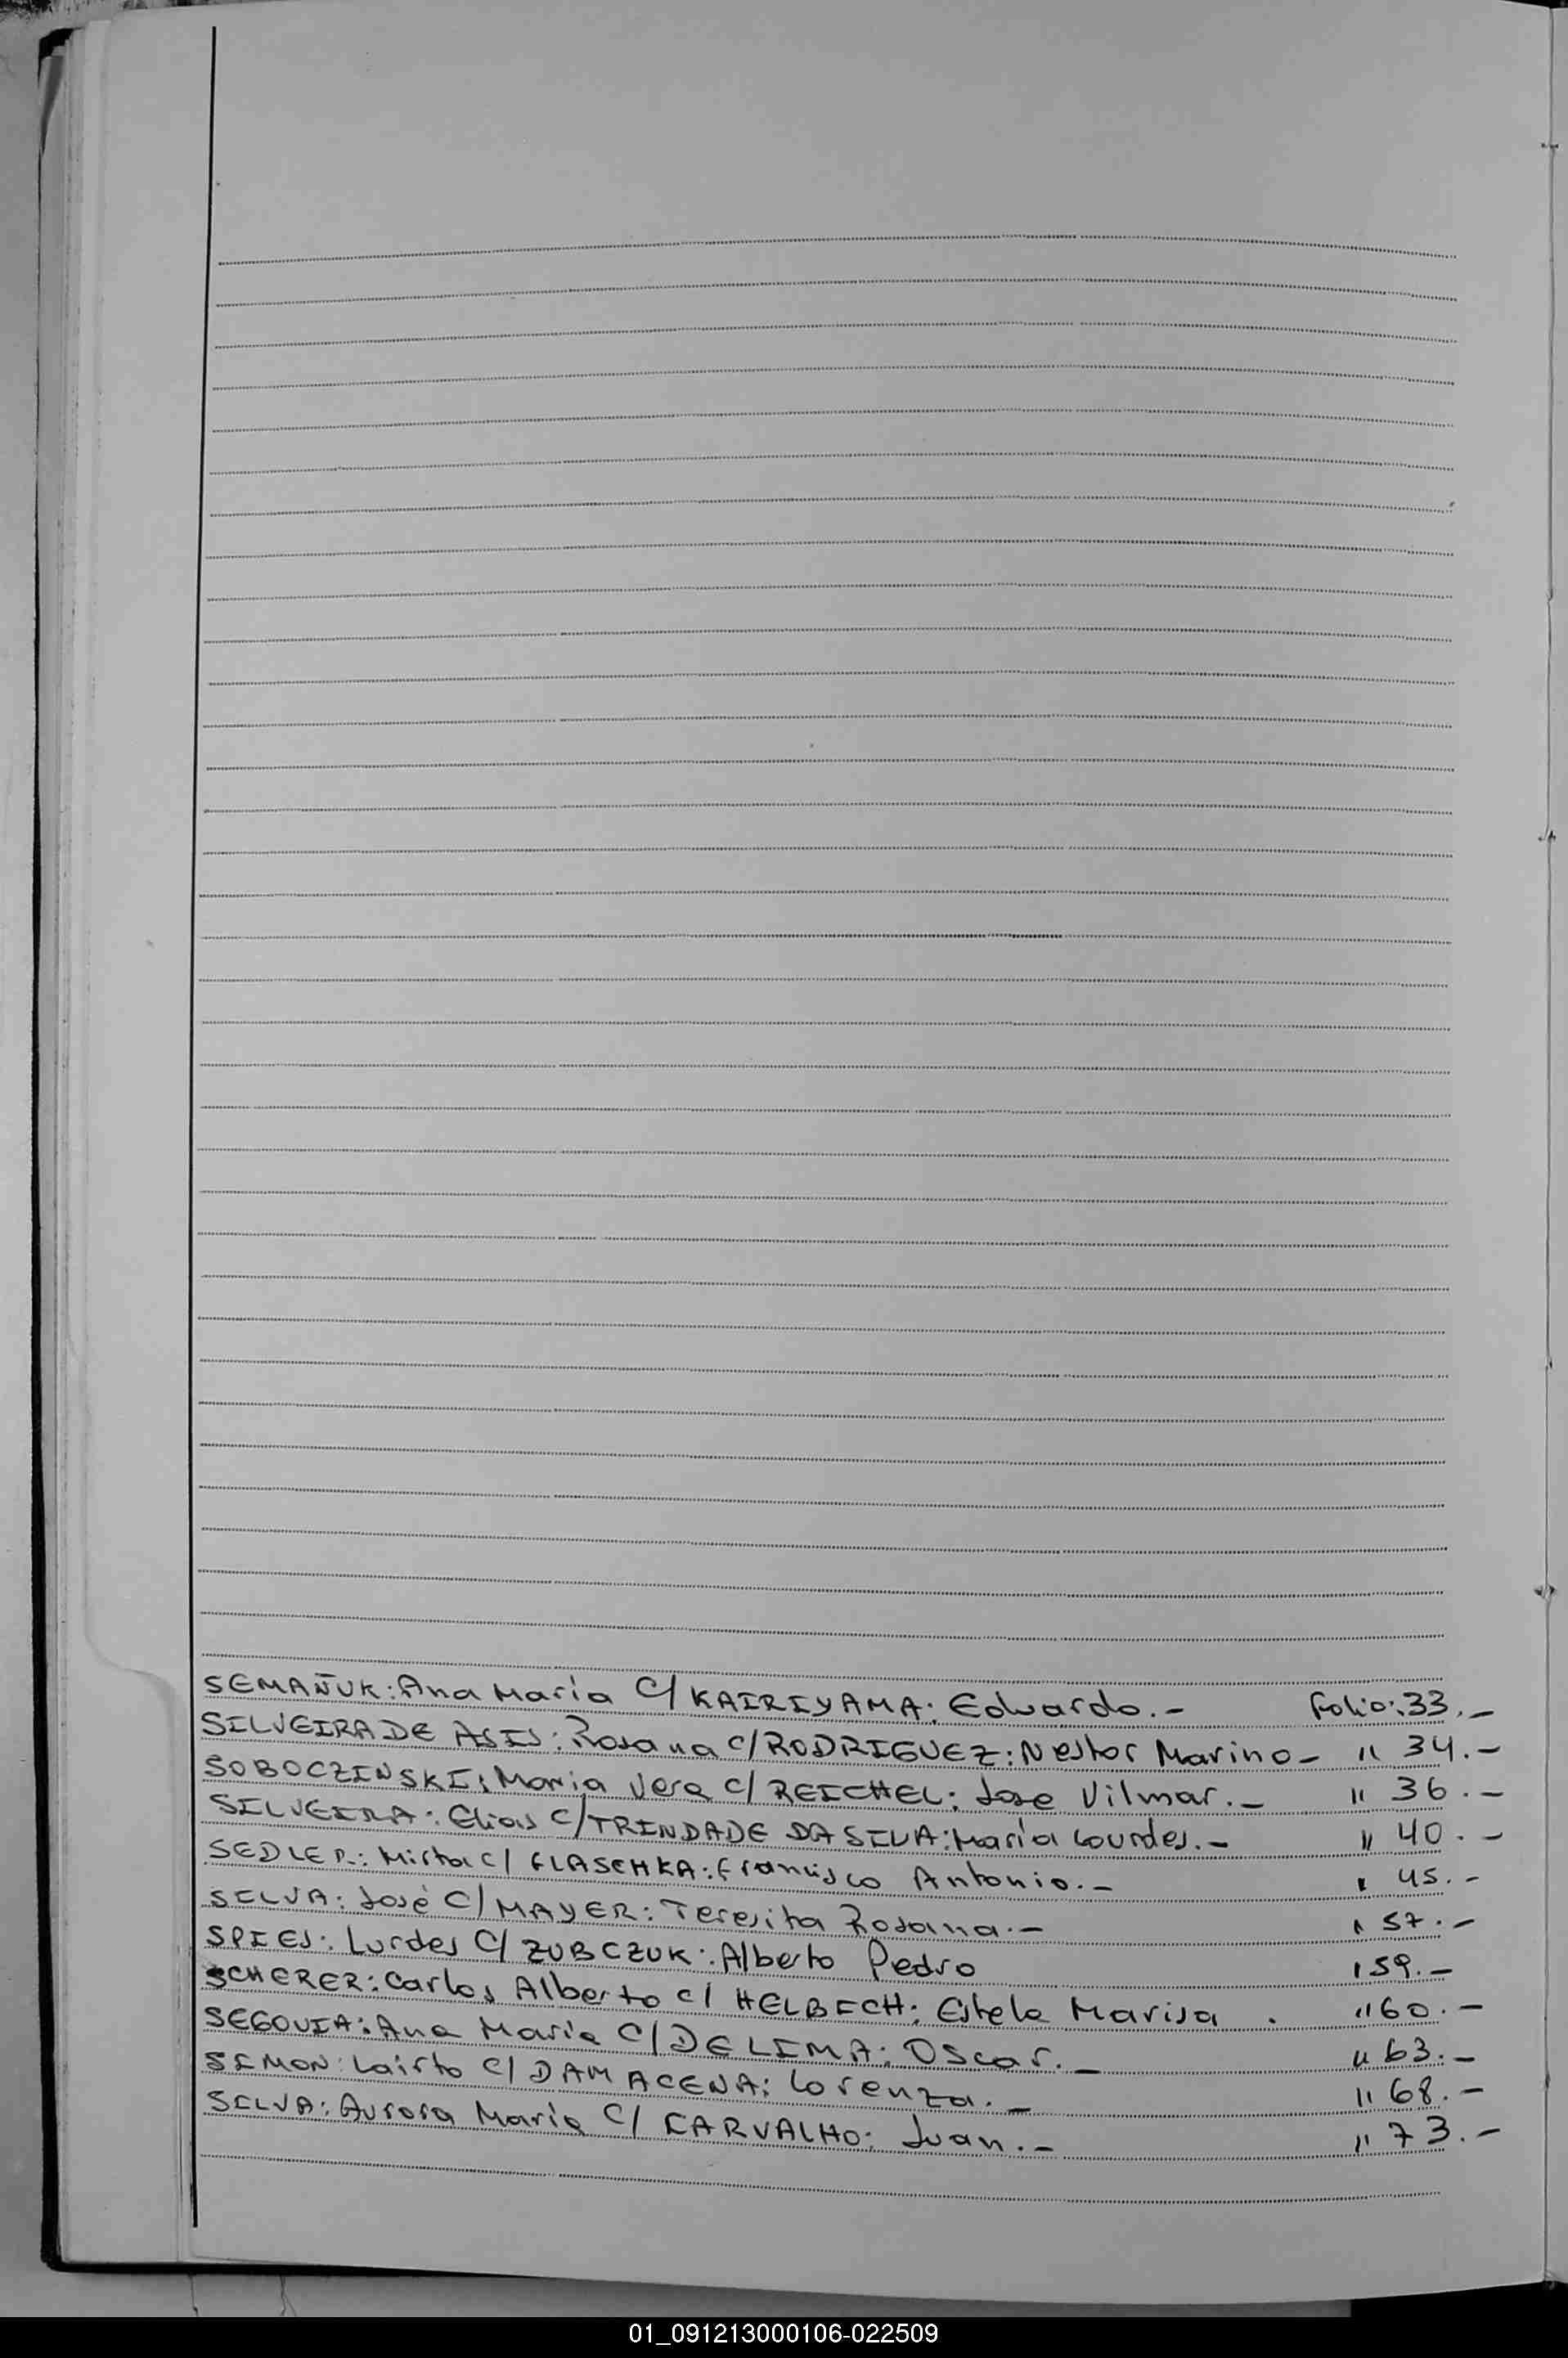 SEMAÑUK: Ana Maria C/ KAIRIYAMA: Eduardo.- Folio: 33.-
SILVEIRA DE ASIS: Rosana c/ RODRIGUEZ: Nestor Marino- " 34.-
SOBOCZINSKI: Maria Vera c/ REICHEL: Jose Vilmar.- " 36.-
SILVEIRA: Elias C/ TRINDADE DA SILVA: Maria Lourdes.- " 40.-
SEDLER: Mirta c/ FLASCHKA: Francisco Antonio.- " 45.-
SILVA: José C/ MAYER: Teresita Rosana.- " 57.-
SPIES: Lurdes C/ ZUBCZUK: Alberto Pedro " 59.-
SCHERER: Carlos Alberto c/ HELBICH: Estela Marisa . " 60.-
SEGOVIA: Ana Maria C/ DE LIMA: Oscar.- " 63.-
SIMON: Lairto C/ DAMACENA: Lorenza.- " 68.-
SILVA: Aurora Maria C/ CARVALHO: Juan.- " 73.-
01_091213000106-022509